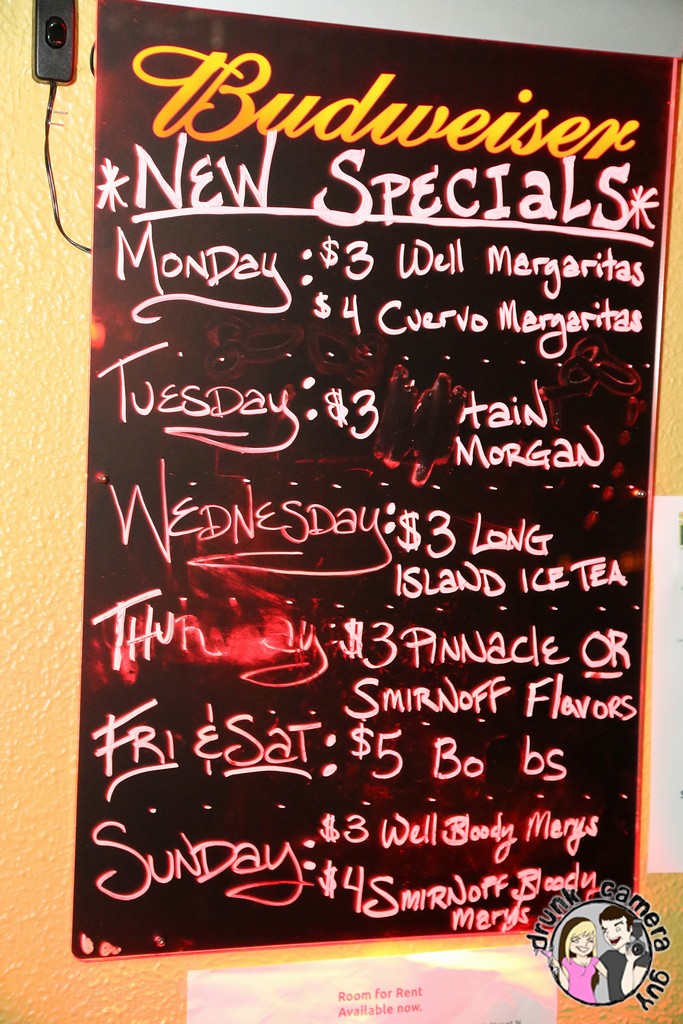 Budweiser
*NEW SPECIALS*
MONDAY: $3 Well Margaritas
$4 Cuervo Margaritas
TUESDAY: $3 tain
MORGAN
WEDNESDAY: $3 LONG
ISLAND ICE TEA
THUR ay: $3 PINNACLE OR
SMIRNOFF FLAVORS
FRI & SAT: $5 Bo bs
SUNDAY: $3 Well Bloody Marys
$4 SMIRNOFF Bloody
Marys
drunk camera guy
Room for Rent
Available now.